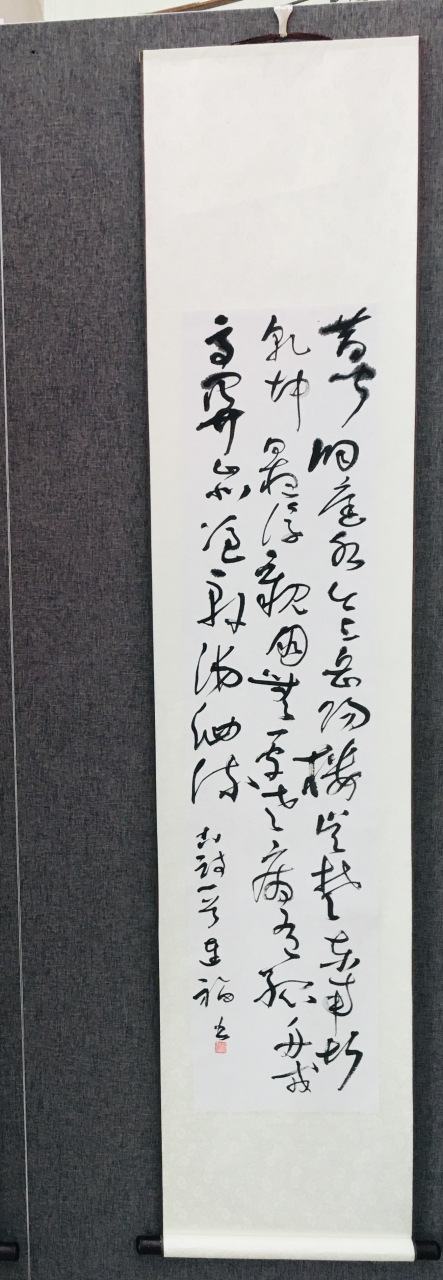 昔闻洞庭水今上岳阳楼吴楚东南坼
乾坤日夜浮親朋無一字老病有孤舟戎
马関山北凭轩涕泗流
古诗一首 福书